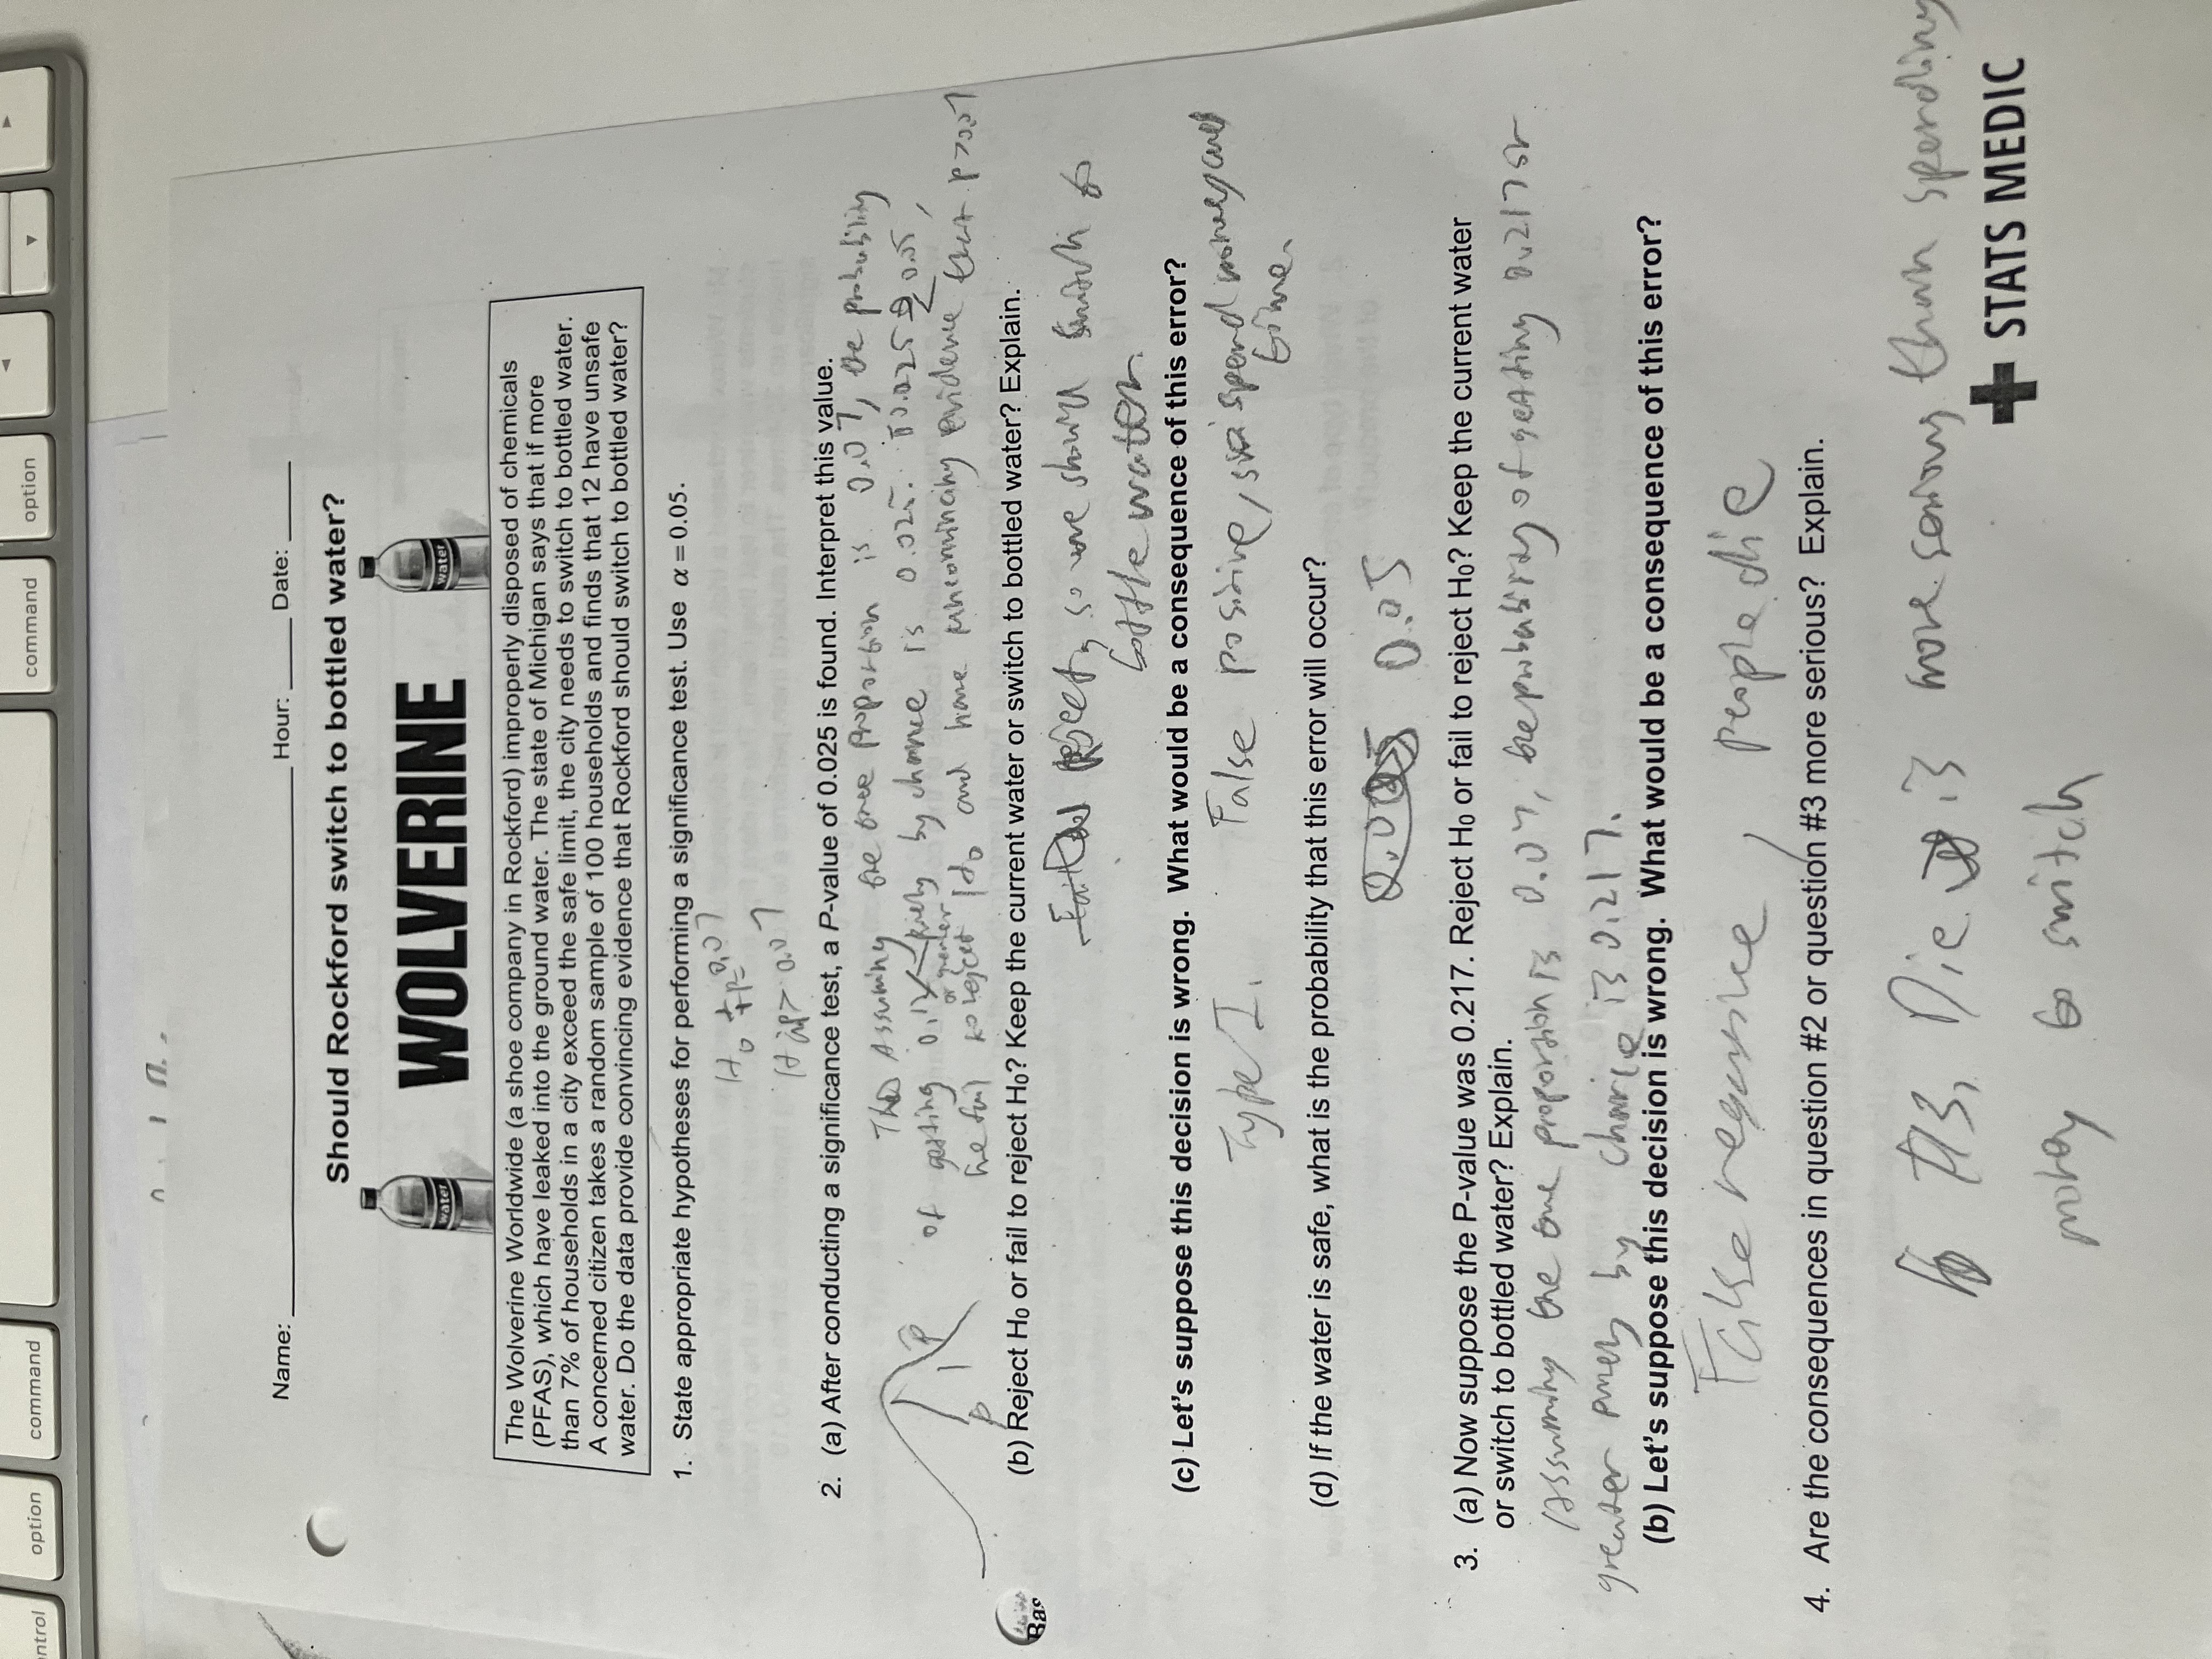 ntrol
option
command
command
option
Name: Hour: Date:
Should Rockford switch to bottled water?
water
WOLVERINE
water
The Wolverine Worldwide (a shoe company in Rockford) improperly disposed of chemicals
(PFAS), which have leaked into the ground water. The state of Michigan says that if more
than 7% of households in a city exceed the safe limit, the city needs to switch to bottled water.
A concerned citizen takes a random sample of 100 households and finds that 12 have unsafe
water. Do the data provide convincing evidence that Rockford should switch to bottled water?
1. State appropriate hypotheses for performing a significance test. Use α = 0.05.
H₀ p=0.07
Ha p> 0.07
2. (a) After conducting a significance test, a P-value of 0.025 is found. Interpret this value.
Assuming the true proportion is 0.07, the probability
of getting 0.12 or greater purely by chance is 0.025. 0.025 < 0.05,
we fail to reject H₀ and have evidence that p>0.07
p̂
p
(b) Reject H₀ or fail to reject H₀? Keep the current water or switch to bottled water? Explain.
reject, so we should switch to
bottle water.
(c) Let's suppose this decision is wrong. What would be a consequence of this error?
Type I. False positive, spend money and
time.
(d) If the water is safe, what is the probability that this error will occur?
0.05
3. (a) Now suppose the P-value was 0.217. Reject H₀ or fail to reject H₀? Keep the current water
or switch to bottled water? Explain.
Assuming the true proportion is 0.07, the probability of getting 0.217 or
greater purely by chance is 0.217.
(b) Let's suppose this decision is wrong. What would be a consequence of this error?
False negative, people die
4. Are the consequences in question #2 or question #3 more serious? Explain.
#3, Die is more serious than spending
money to switch
STATS MEDIC